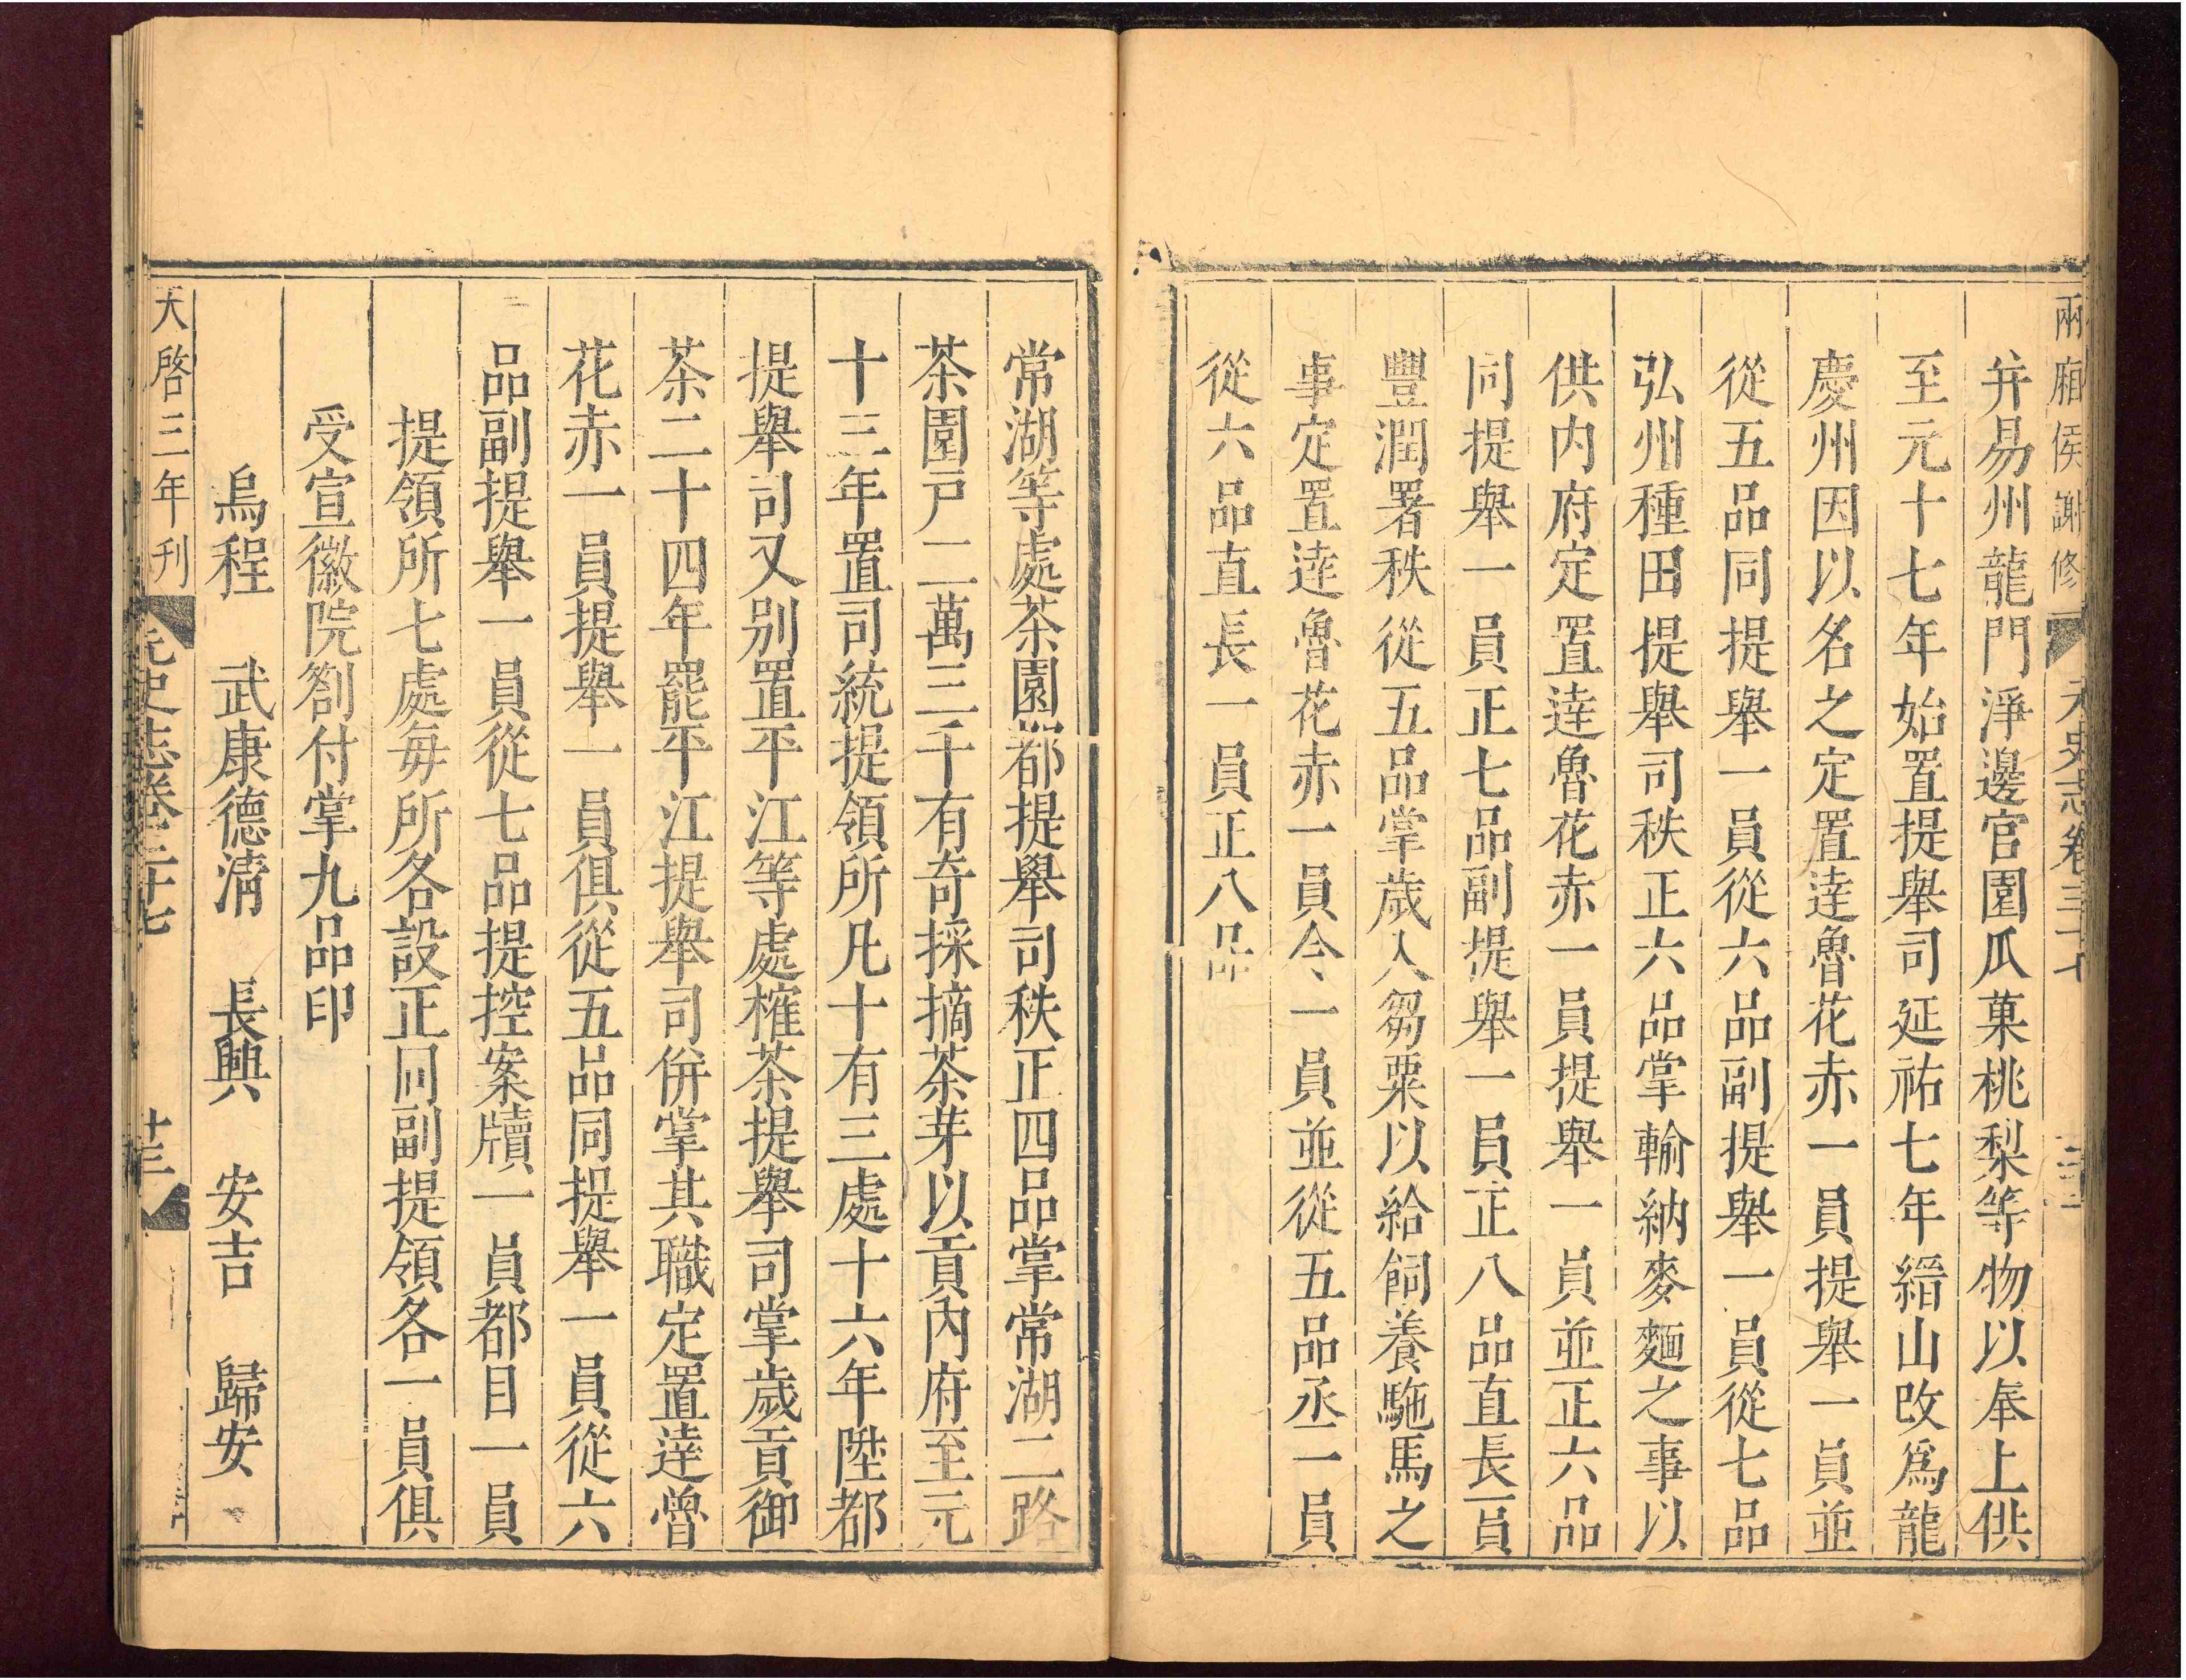 兩廂侯謝修 元史志卷三十七
并易州龍門淨邊官園瓜菓桃梨等物以奉上供
至元十七年始置提舉司延祐七年縉山改爲龍
慶州因以名之定置達魯花赤一員提舉一員並
從五品同提舉一員從六品副提舉一員從七品
弘州種田提舉司秩正六品掌輸納麥麵之事以
供內府定置達魯花赤一員提舉一員並正六品
同提舉一員正七品副提舉一員正八品直長一員
豐潤署秩從五品掌歲入芻粟以給飼養駞馬之
事定置達魯花赤一員令一員並從五品丞一員
從六品直長一員正八品
常湖等處茶園都提舉司秩正四品掌常湖二路
茶園戸二萬三千有奇採摘茶芽以貢內府至元
十三年置司統提領所凡十有三處十六年陞都
提舉司又别置平江等處榷茶提舉司掌歲貢御
茶二十四年罷平江提舉司併掌其職定置達魯
花赤一員提舉一員俱從五品同提舉一員從六
品副提舉一員從七品提控案牘一員都目一員
提領所七處每所各設正同副提領各一員俱
受宣徽院劄付掌九品印
烏程 武康德清 長興 安吉 歸安
天啓三年刊 元史志卷三十七